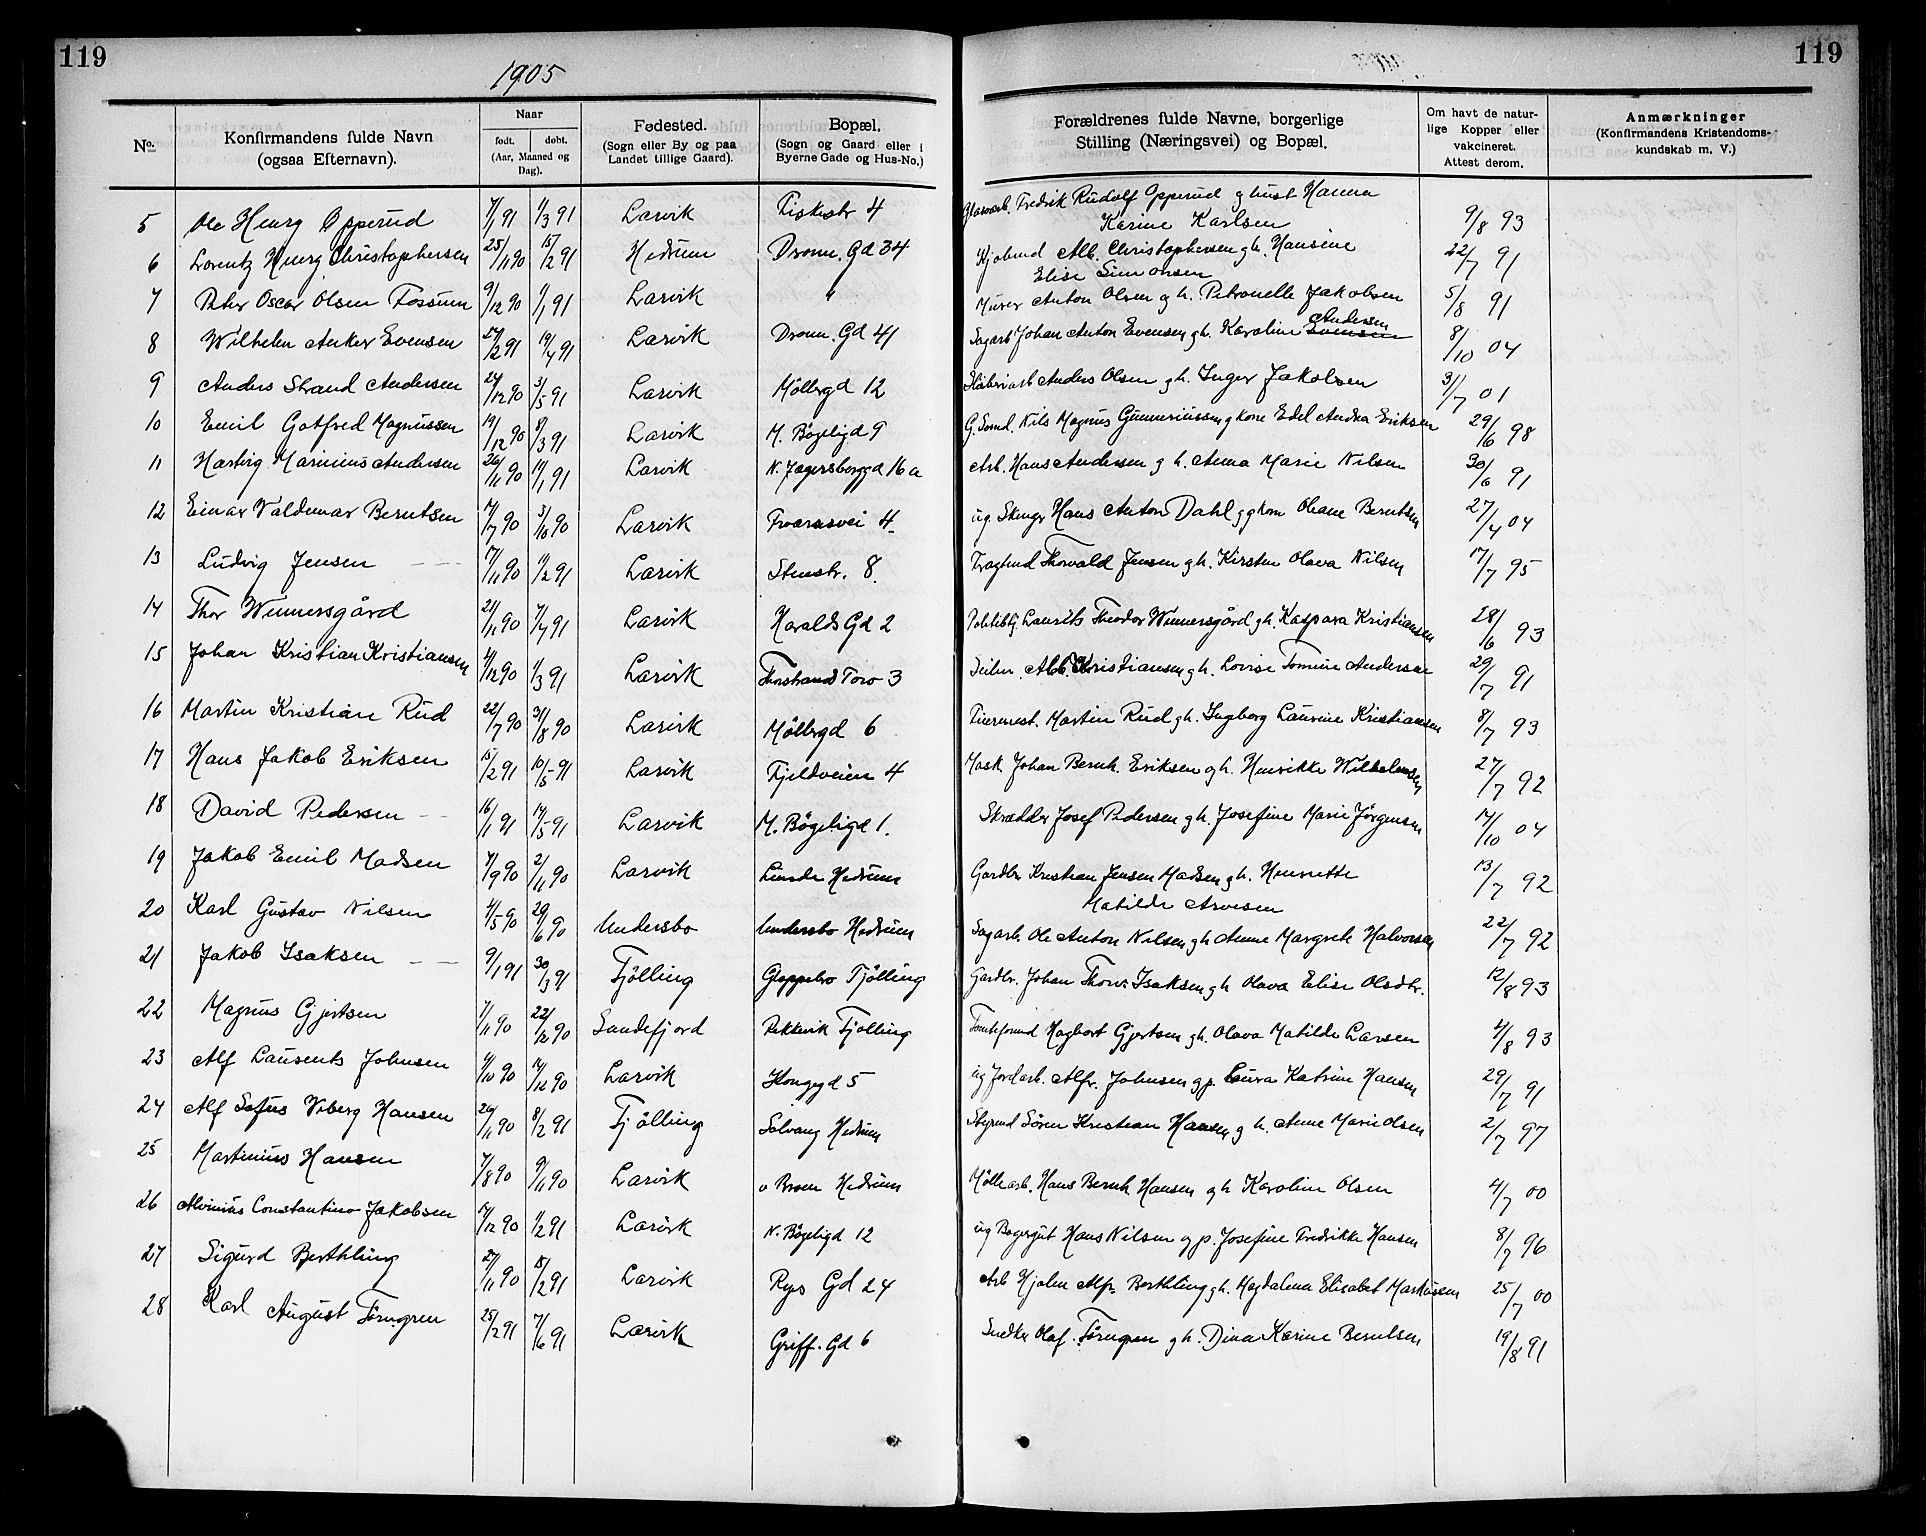 119
119
1905
No.
Konfirmandens fulde Navn
(ogsaa Efternavn).
Naar
født. døbt.
(Aar, Maaned og Dag).
Fødested.
(Sogn eller By og paa Landet tillige Gaard).
Bopæl.
(Sogn og Gaard eller i Byerne Gade og Hus-No.)
Forældrenes fulde Navne, borgerlige
Stilling (Næringsvei) og Bopæl.
Om havt de naturlige Kopper eller vakcineret. Attest derom.
Anmærkninger
(Konfirmandens Kristendomskundskab m. V.)
5 Ole Henry Opperud 7/1 91 1/3 91 Larvik Fiskestr 4 Fredrik Rudolf Opperud g hust Hanna Karine Karlsen 9/8 93
6 Lorentz Henry Christophersen 25/11 90 15/2 91 Hedrum Dronn. Gd 34 Alb. Christophersen g h. Hansine Elise Simonsen 22/7 91
7 Peter Oscar Olsen Fossum 9/12 90 1/1 91 Larvik " Murer Anton Olsen g h. Petronelle Jakobsen 5/8 91
8 Wilhelm Anker Evensen 27/2 91 19/4 91 Larvik Dronn. Gd 41 Sagarb Johan Anton Evensen g h. Karoline Evensen Andersen 8/10 04
9 Anders Strand Andersen 24/12 90 3/5 91 Larvik Møllergd 12 Anders Olsen g h. Inger Jakobsen 3/7 01
10 Emil Gotfred Magnussen 19/12 90 8/3 91 Larvik M. Bøgeligd 9 Nils Magnus Gunneriussen g kone Edel Andrea Eriksen 29/6 98
11 Hartvig Marinius Andersen 26/11 90 11/1 91 Larvik N. Jegersborggd 16a Arb. Hans Andersen g h. Anna Marie Nilsen 30/6 91
12 Einar Valdemar Berntsen 17/7 90 3/10 90 Larvik Hans Anton Dahl Oleane Berntsen 27/4 04
13 Ludvig Jensen 17/11 90 1/2 91 Larvik Stenstr. 8. Thorvald Jensen g h. Kirsten Olava Nilsen 17/7 95
14 Thor Wennersgård 21/11 90 7/4 91 Larvik Haralds Gd 2 Laurits Theodor Wennersgård g h. Kaspara Kristiansen 28/6 93
15 Johan Kristian Kristiansen 4/12 90 1/3 91 Larvik Thorstrand Toro 3 Alb. Kristiansen g h. Lovise Tomine Andersen 29/7 91
16 Martin Kristian Rud 22/7 90 31/8 90 Larvik Møllergd 6 Martin Rud g h. Ingborg Laurine Kristiansen 8/7 93
17 Hans Jakob Eriksen 15/2 91 10/5 91 Larvik Fjeldveien 4 Mask. Johan Bernh. Eriksen g h. Henrikke Wilhelmsen 27/7 92
18 David Pedersen 16/1 91 17/5 91 Larvik M. Bøgeligd 1. Skrædder Josef Pedersen g h. Josefine Marie Jørgensen 14/10 04
19 Jakob Emil Madsen 7/9 90 2/11 90 Larvik Hedrum Gardbr Kristian Jensen Madsen g h. Henriette Matilde Arvesen 13/7 92
20 Karl Gustav Nilsen 4/5 90 29/6 90 Undersbo Undersbo Hedrum Sagarb. Ole Anton Nilsen g h Anne Margrete Halvorsen 22/7 92
21 Jakob Isaksen 9/1 91 30/3 91 Tjølling Gloppebo Tjølling Gardbr. Johan Thorv. Isaksen g h Olava Elise Olsdtr. 12/8 93
22 Magnus Gjertsen 7/11 90 22/12 90 Sandefjord Rekkevik Tjølling Hagbart Gjertsen g h. Olava Matilde Larsen 4/8 93
23 Alf Laurents Johnsen 4/10 90 14/12 90 Larvik Kongegd 5 ug Jordarb. Alfr. Johnsen g p. Laura Katrine Hansen 29/7 91
24 Alf Sofus Viberg Hansen 26/11 90 8/2 91 Tjølling Solvang Hedrum Styrmd Søren Kristian Hansen g h. Anne Marie Olsen 2/7 97
25 Martinius Hansen 7/8 90 9/11 90 Larvik Hedrum Møllearb. Hans Bernh Hansen g h Karoline Olsen 4/7 00
26 Alvinius Constantino Jakobsen 14/12 90 1/2 91 Larvik N. Bøgeligd 12 ug Bagergut Hans Nilsen g p. Josefine Fredrikke Hansen 8/7 96
27 Sigurd Berthling 27/11 90 15/2 91 Larvik Ryes Gd 24 Arb Hjalm Alfr Berthling g h. Magdalena Elisabet Markusen 25/7 00
28 Karl August Törngren 25/2 91 7/6 91 Larvik Griff. Gd 6 Snedker Olaf Törngren g h. Dina Karine Berntsen 19/8 91